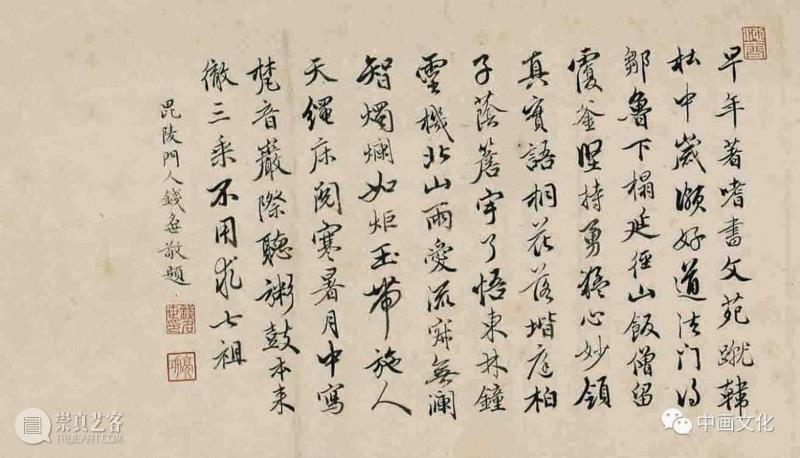 早年著嗜書文苑蹴韓
杜中歲頗好道法門得
鄒魯下榻延徑山飯僧留
覆釜堅持勇猛心妙領
真實語桐花落堦庭柏
子蔭簷宇了悟東林鐘
靈機北山雨愛流寂無瀾
智燭爛如炬玉帶施人
天繩床閱寒暑月中寫
梵音巖際聽粥鼓本來
徹三乘不用求七祖
毘陵門人錢敬題
崇真艺客
TRUEART.COM
中画文化